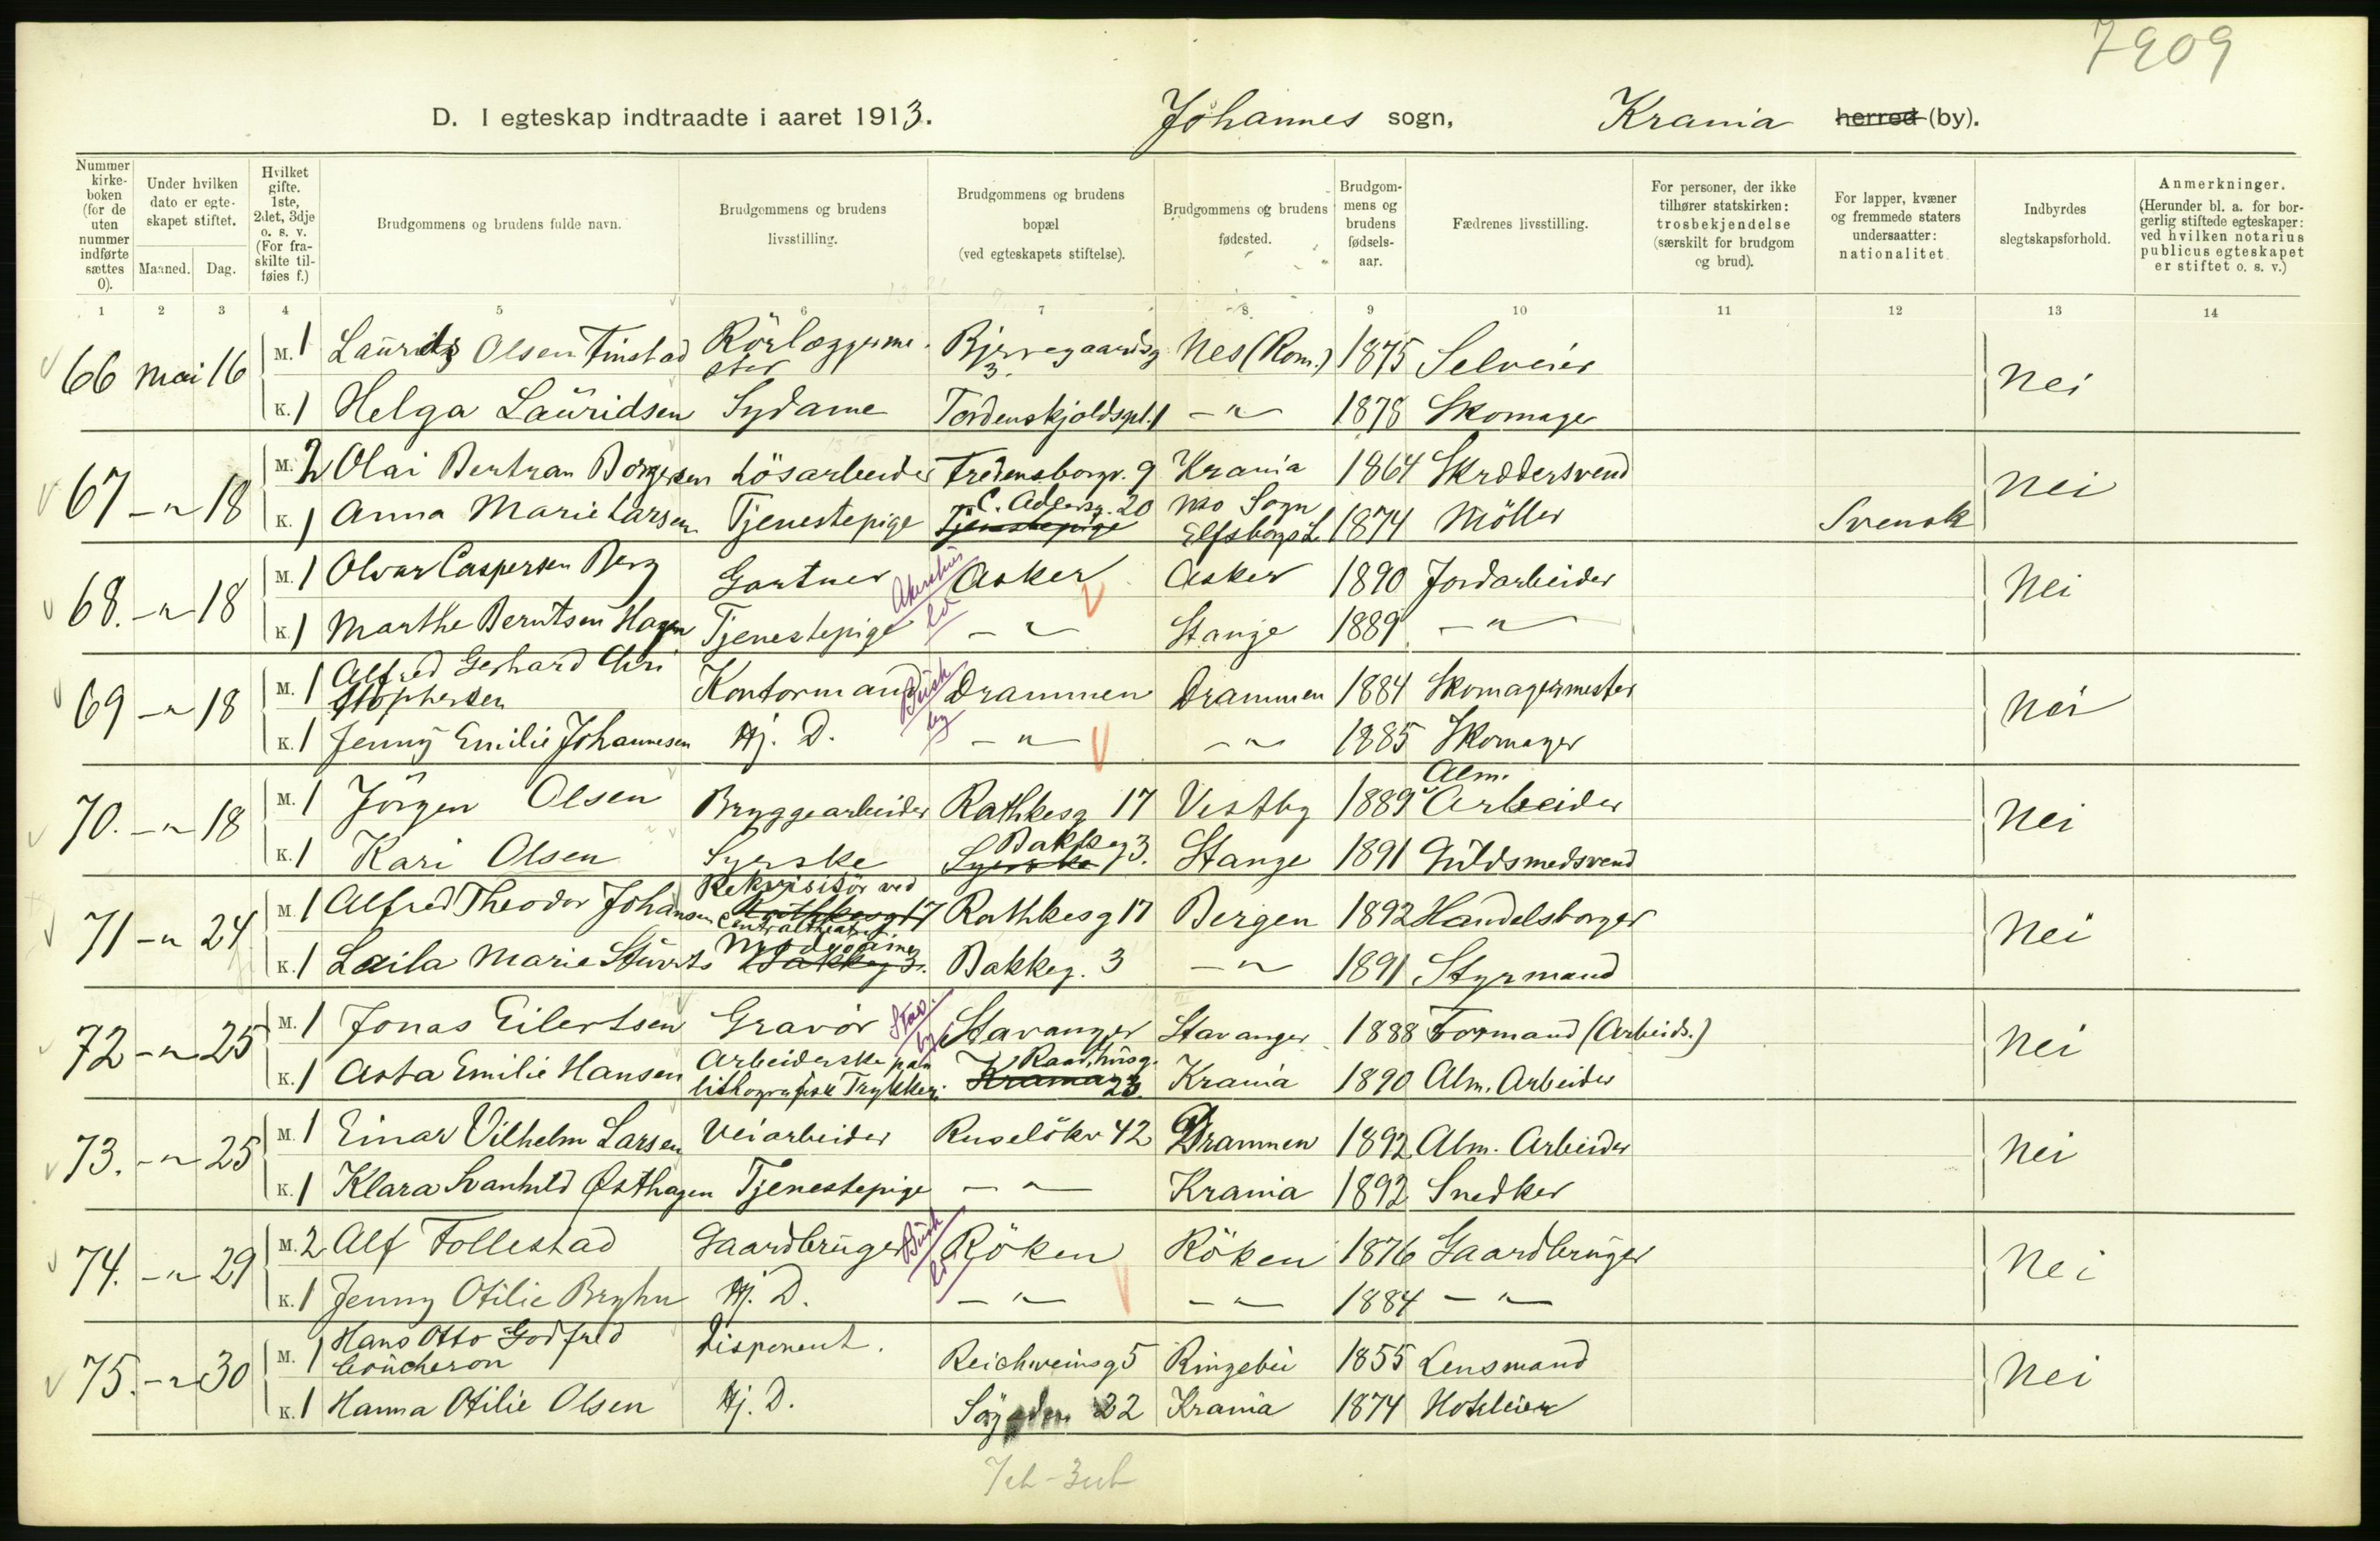 7909
D. I egteskap indtraadte i aaret 1913. Johannes sogn, Krania herred (by).
Nummer kirke-boken (for de uten nummer indførte sættes 0). | Under hvilken dato er egte-skapet stiftet. Maaned. Dag. | Hvilket gifte. 1ste, 2det, 3dje o. s. v. (For fra-skilte til-føies f.) | Brudgommens og brudens fulde navn. | Brudgommens og brudens livsstilling. | Brudgommens og brudens bopæl (ved egteskapets stiftelse). | Brudgommens og brudens fødested. | Brudgom-mens og brudens fødsels-aar. | Fædrenes livsstilling. | For personer, der ikke tilhører statskirken: trosbekjendelse (særskilt for brudgom og brud). | For lapper, kvæner og fremmede staters undersaatter: nationalitet. | Indbyrdes slegtskapsforhold. | Anmerkninger. (Herunder bl. a. for bor-gerlig stiftede egteskaper: ved hvilken notarius publicus egteskapet er stiftet o. s. v.)
1 2 3 4 5 6 7 8 9 10 11 12 13 14
66 Mai 16 M. 1 Laurits Olsen Finstad Rörlæggermester Bjerregaardsg 3. Nes (Rom.) 1875 Selveier Nei
K. 1 Helga Lauridsen Sydame Tordenskjoldspl. 1 -"- 1878 Skomager
67 -"- 18 M. 2 Olai Bertran Borgersen Lösarbeider Fredensborgv. 9 Krania 1864 Skrddersvend Nei
K. 1 Anna Marie Larsen Tjenestepige Tjenestepige C. Adlersg. 20 Sogn Elfsborgs L 1874 Möller Svensk
68. -"- 18 M. 1 Olvar Caspersen Berg Gartner Akershus Ld Asker Asker 1890 Jordarbeider Nei
K. 1 Marthe Berntsen Hagen Tjenestepige -"- Stange 1889 -"-
69 -"- 18 M. 1 Alfred Gerhard Christophersen Kontormand Busk by Drammen Drammen 1884 Skomagermester Nei
K. 1 Jenny Emilie Johannesen Hj. D. -"- -"- 1885 Skomager
70. -"- 18 M. 1 Jörgen Olsen Bryggearbeider Rathkesg 17 Vestby 1889 Alm. Arbeider Nei
K. 1 Kari Olsen Syerske Syerske Bakkeg 3. Stange 1891 Guldsmedsvend
71 -"- 24 M. 1 Alfred Theodor Johansen Rekvisitör ved Rathkesg 17 Centraltheatret Rathkesg 17 Bergen 1892 Handelsborger Nei
K. 1 Laila Marie Stuvrts Bakkeg 3. Bakkeg. 3 -"- 1891 Styrmand
72 -"- 25 M. 1 Jonas Eilertsen Gravör Stav. by Stavanger Stavanger 1888 Formand (Arbeids.) Nei
K. 1 Asta Emilie Hansen Arbeiderske paa lithografisk Trykkeri Krania Raadhusg. 23. Krania 1890 Alm. Arbeider
73. -"- 25 M. 1 Einar Vilhelm Larsen Veiarbeider Ruselökv 42 Drammen 1892 Alm. Arbeider Nei
K. 1 Klara Svanhild Østhagen Tjenestepige -"- Krania 1892 Snedker
74. -"- 29 M. 2 Alf Follestad Gaardbruger Busk Ld Röken Röken 1876 Gaardbruger Nei
K. 1 Jenny Otilie Bryhn Hj. D. -"- -"- 1884 -"-
75. -"- 30 M. 1 Hans Otto Godfred Coucheron Disponent. Reichweinsg 5 Ringebu 1855 Lensmand Nei
K. 1 Hanna Otilie Olsen Hj. D. 22 Krania 1874 Hoteleier